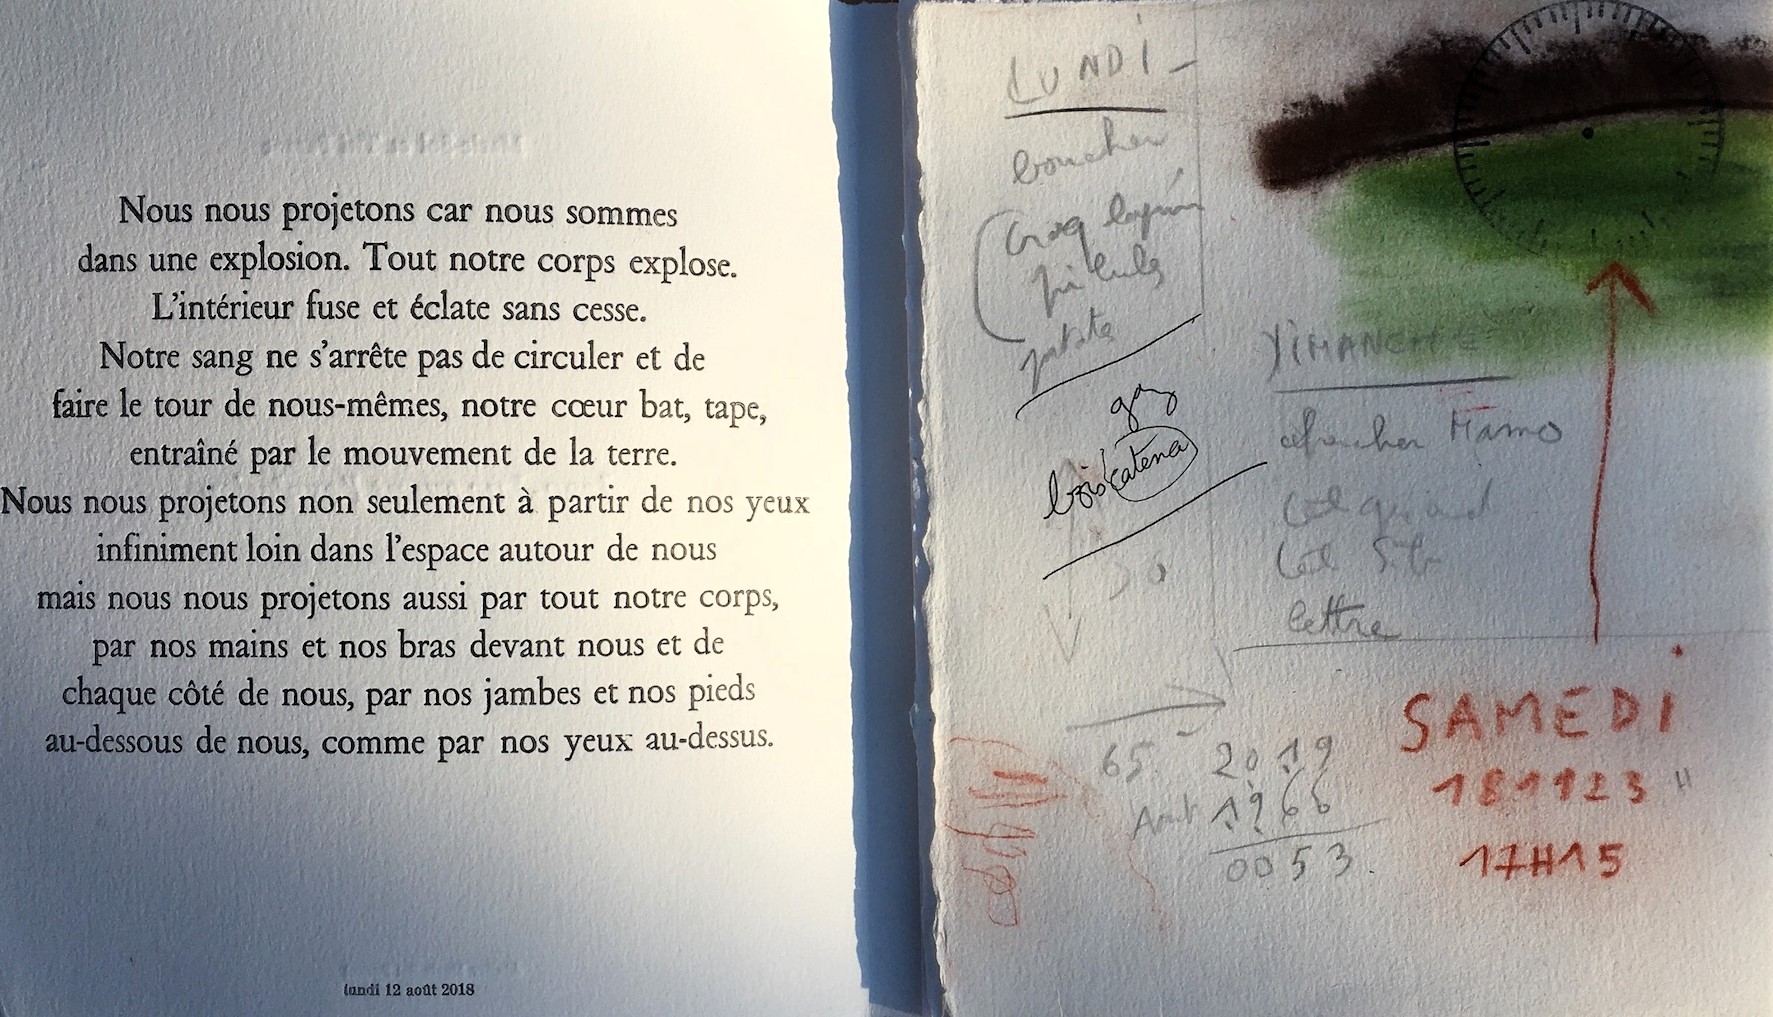 Nous nous projetons car nous sommes
dans une explosion. Tout notre corps explose.
L'intérieur fuse et éclate sans cesse.
Notre sang ne s'arrête pas de circuler et de
faire le tour de nous-mêmes, notre cœur bat, tape,
entraîné par le mouvement de la terre.
Nous nous projetons non seulement à partir de nos yeux
infiniment loin dans l'espace autour de nous
mais nous nous projetons aussi par tout notre corps,
par nos mains et nos bras devant nous et de
chaque côté de nous, par nos jambes et nos pieds
au-dessous de nous, comme par nos yeux au-dessus.
lundi 12 août 2018
LUNDI -
boucher
DIMANCHE
lettre
65 2019
1966
0053.
SAMEDI
181123 "
17H15